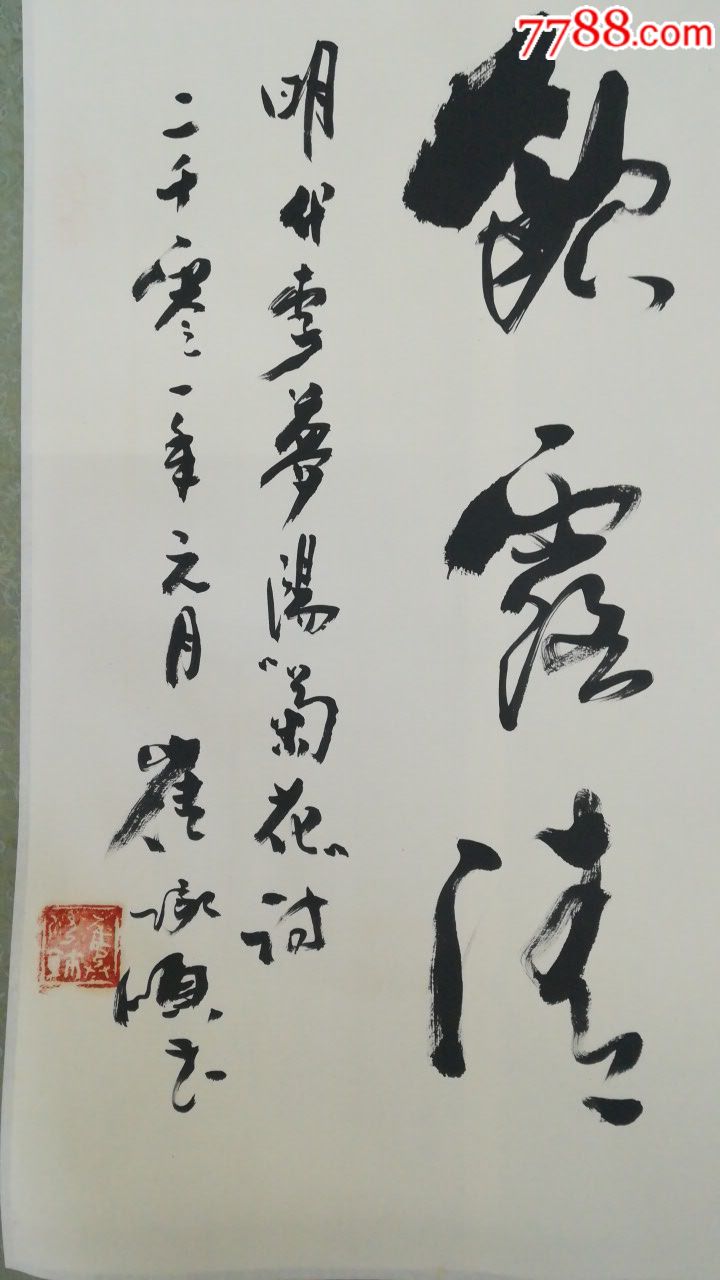 飲露清
明代李夢陽"菊花"诗
二千零一年元月 崔承順书
7788.com